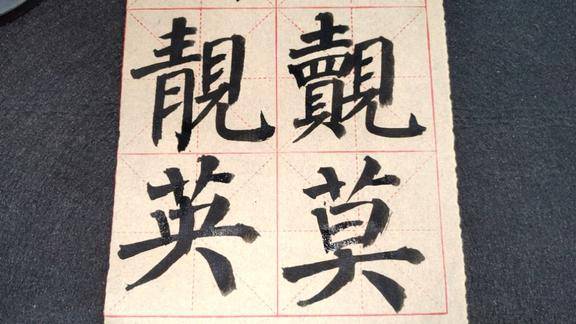 靚覿
英莫